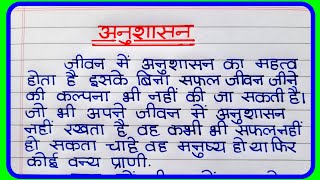 अनुशासन
जीवन में अनुशासन का महत्व
होता है इसके बिना सफल जीवन जीने
की कल्पना भी नहीं की जा सकती है।
जो भी अपने जीवन में अनुशासन
नहीं रखता है वह कभी भी सफल नहीं
हो सकता चाहे वह मनुष्य हो या फिर
कोई वन्य प्राणी.